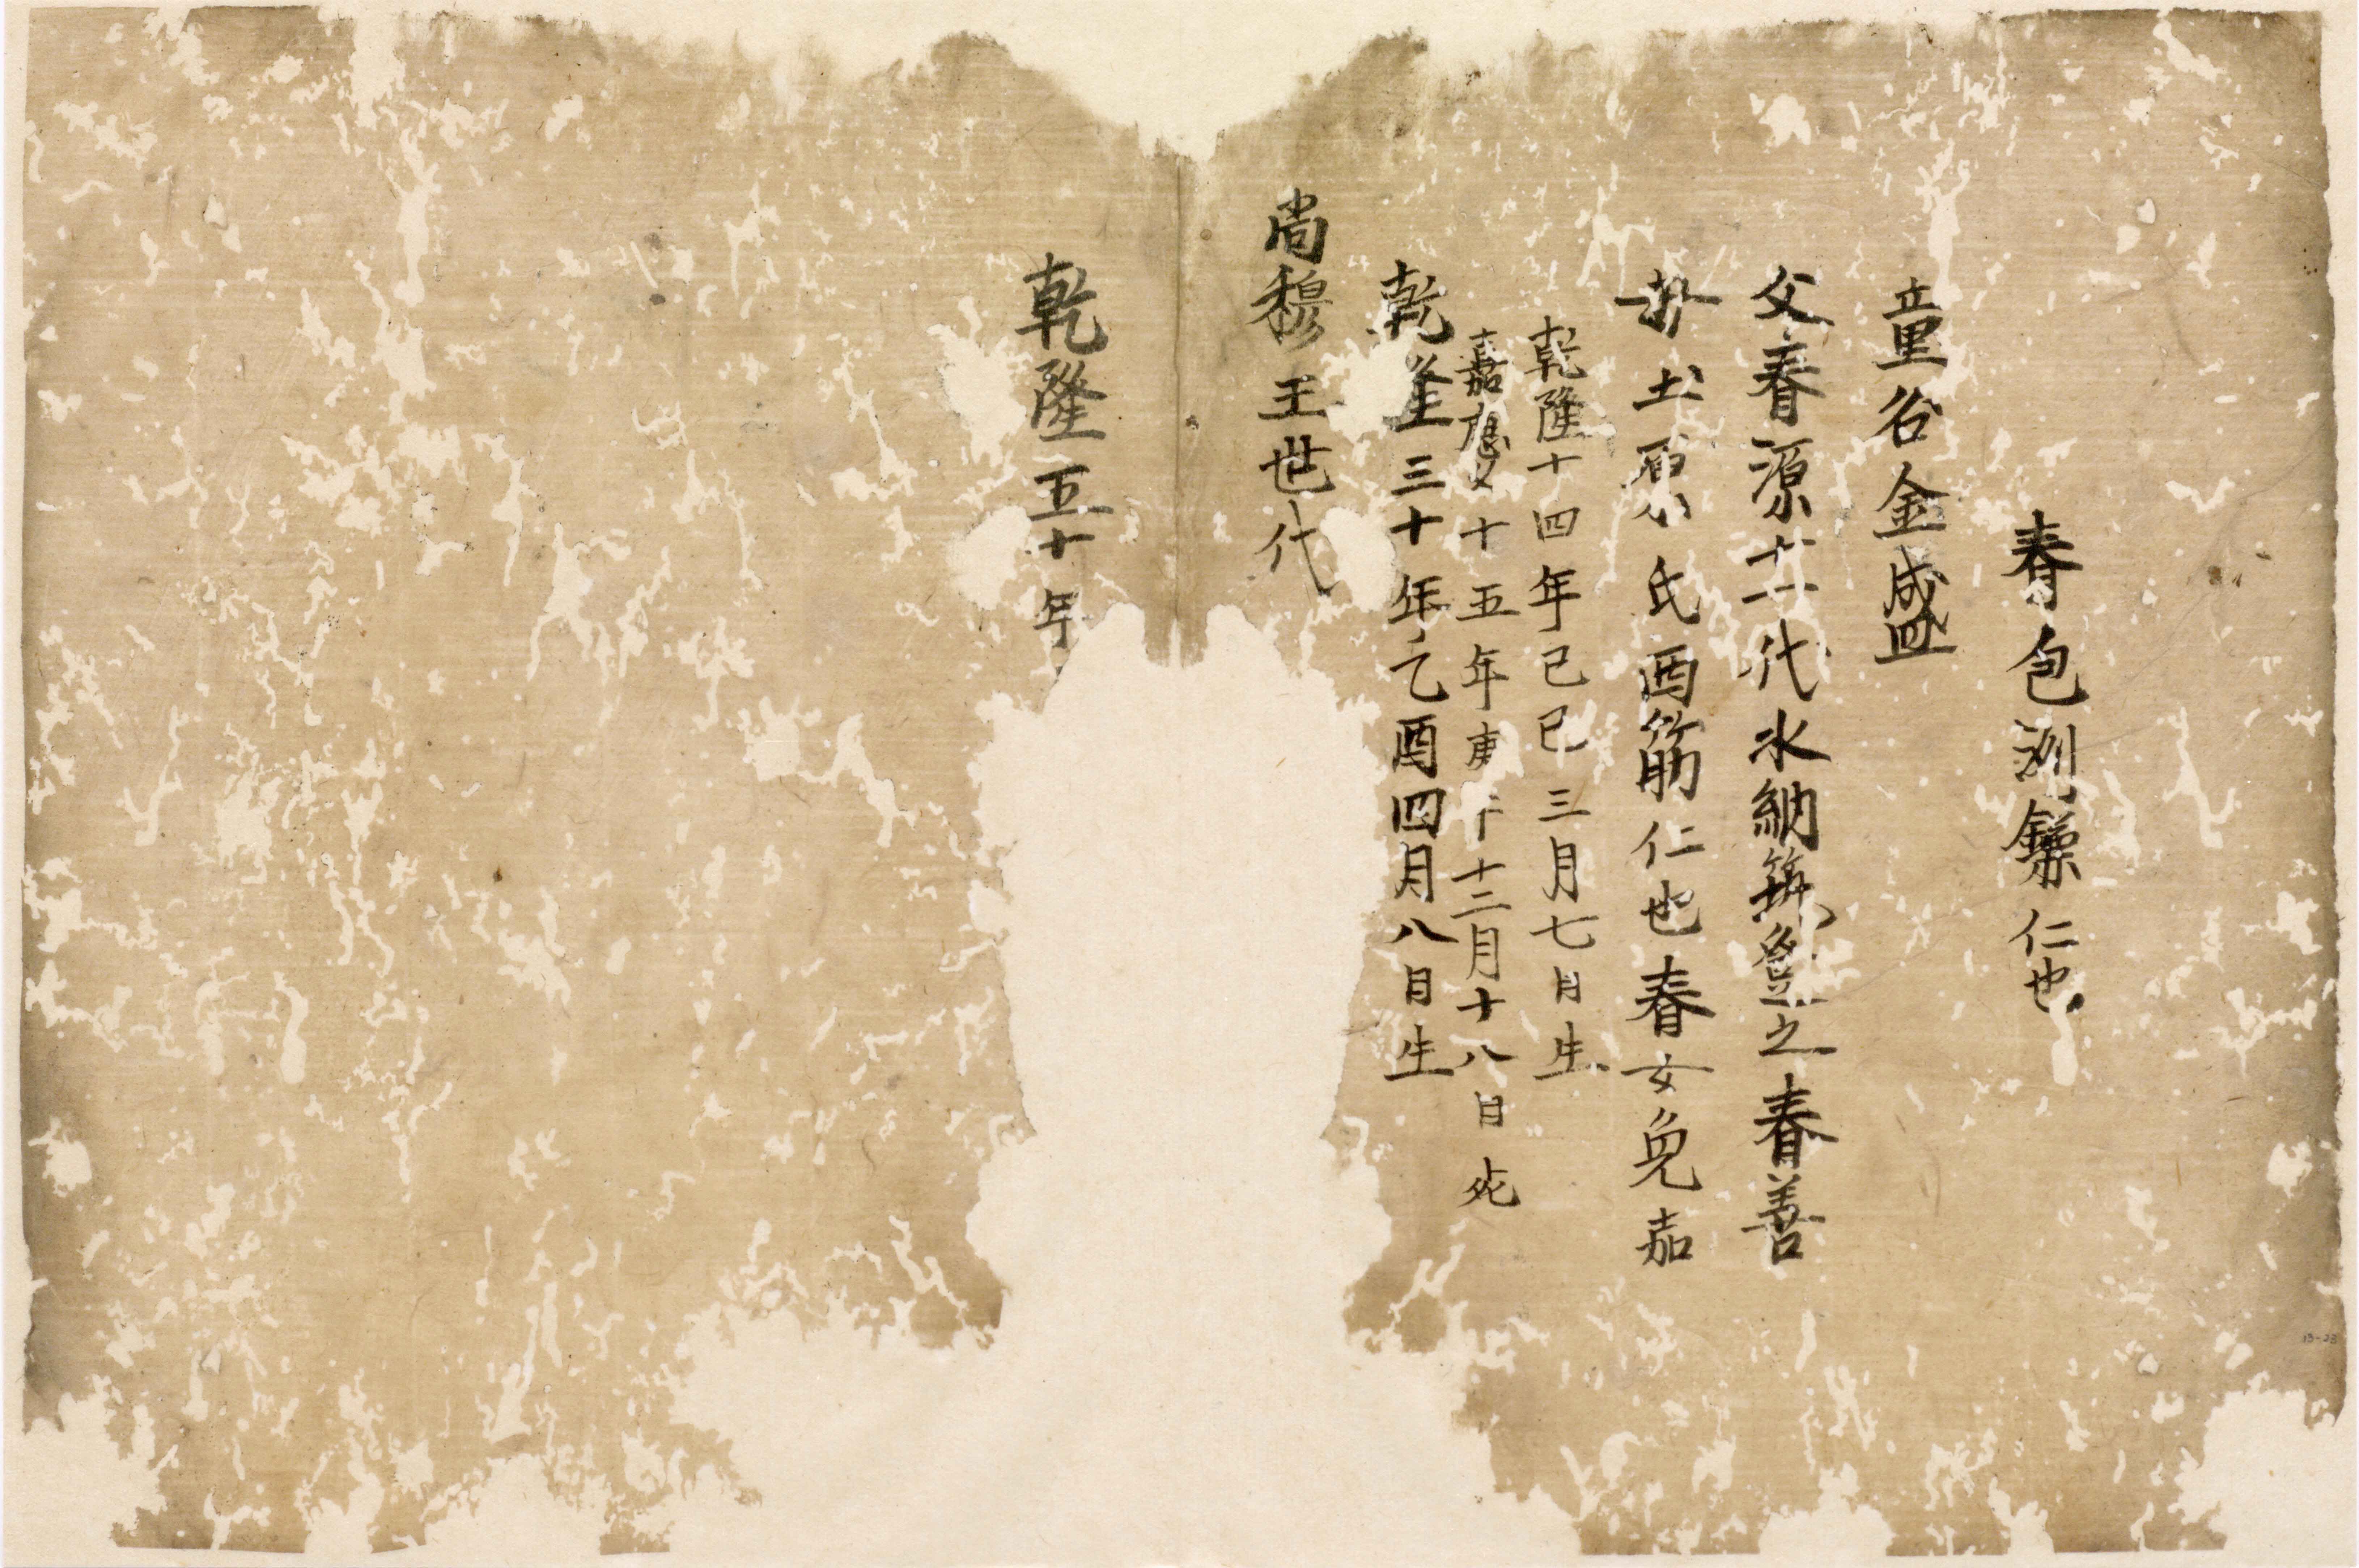 春包渕鎌仁也
童名金盛
父春源廿一代氷納築登之春善
土原氏酉筋仁也春女免嘉
乾隆十四年己巳三月七日生
嘉慶十五年庚午十二月十八日死
乾隆三十年乙酉四月八日生
尚穆王世代
乾隆五十年